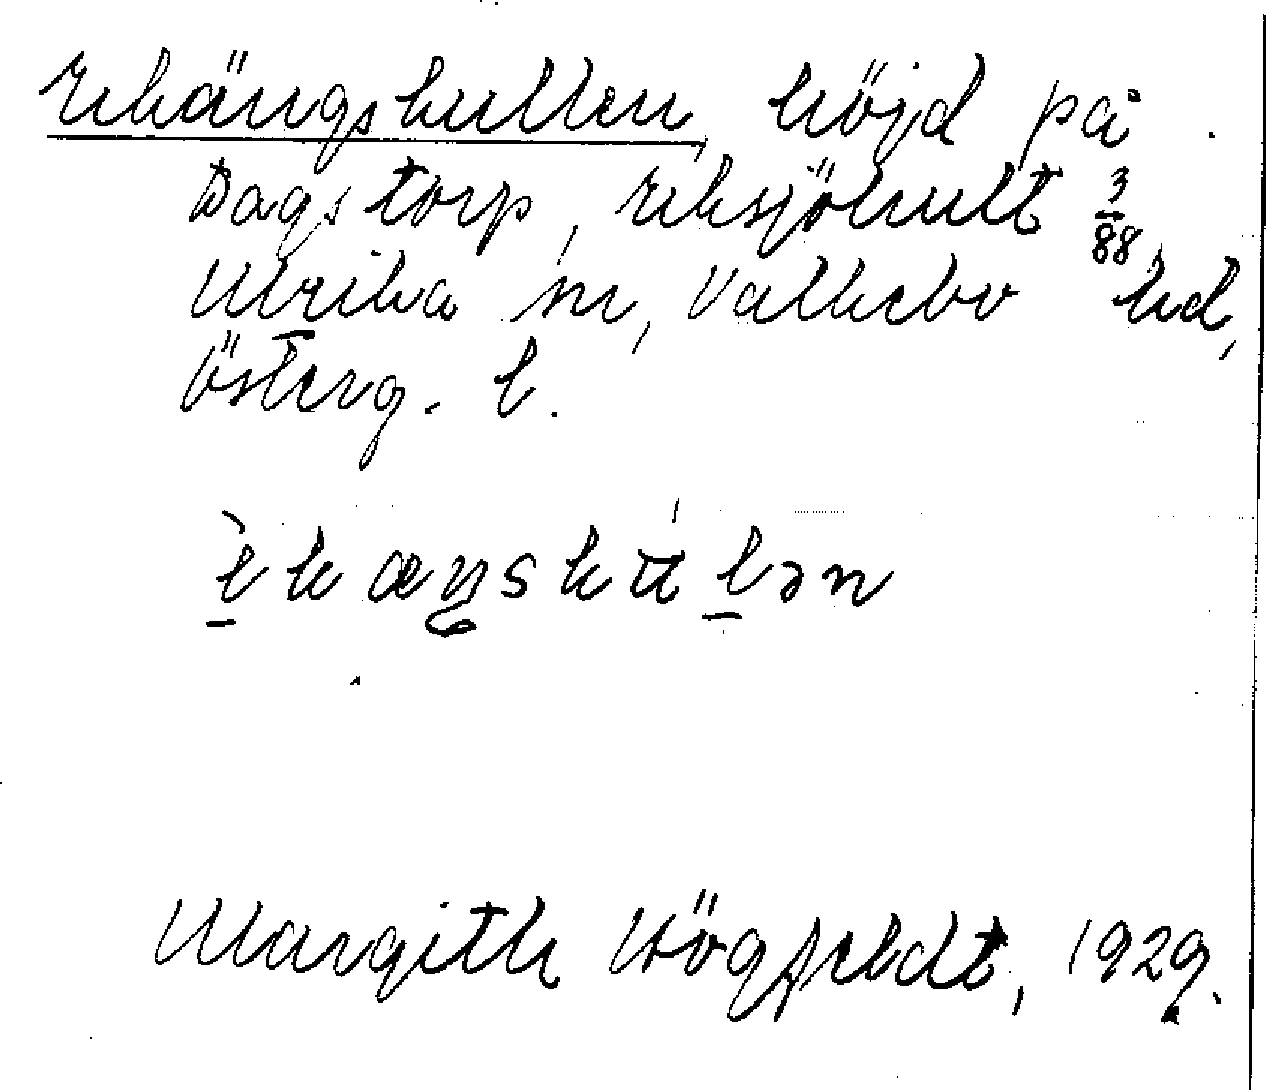 Ekängskullen, höjd på
Dagstorp, Eksjöhult 3/88,
Ulrika sn, Valkebo hd,
Österg. l.
èkæŋskúlən
Margith Högfeldt, 1929.